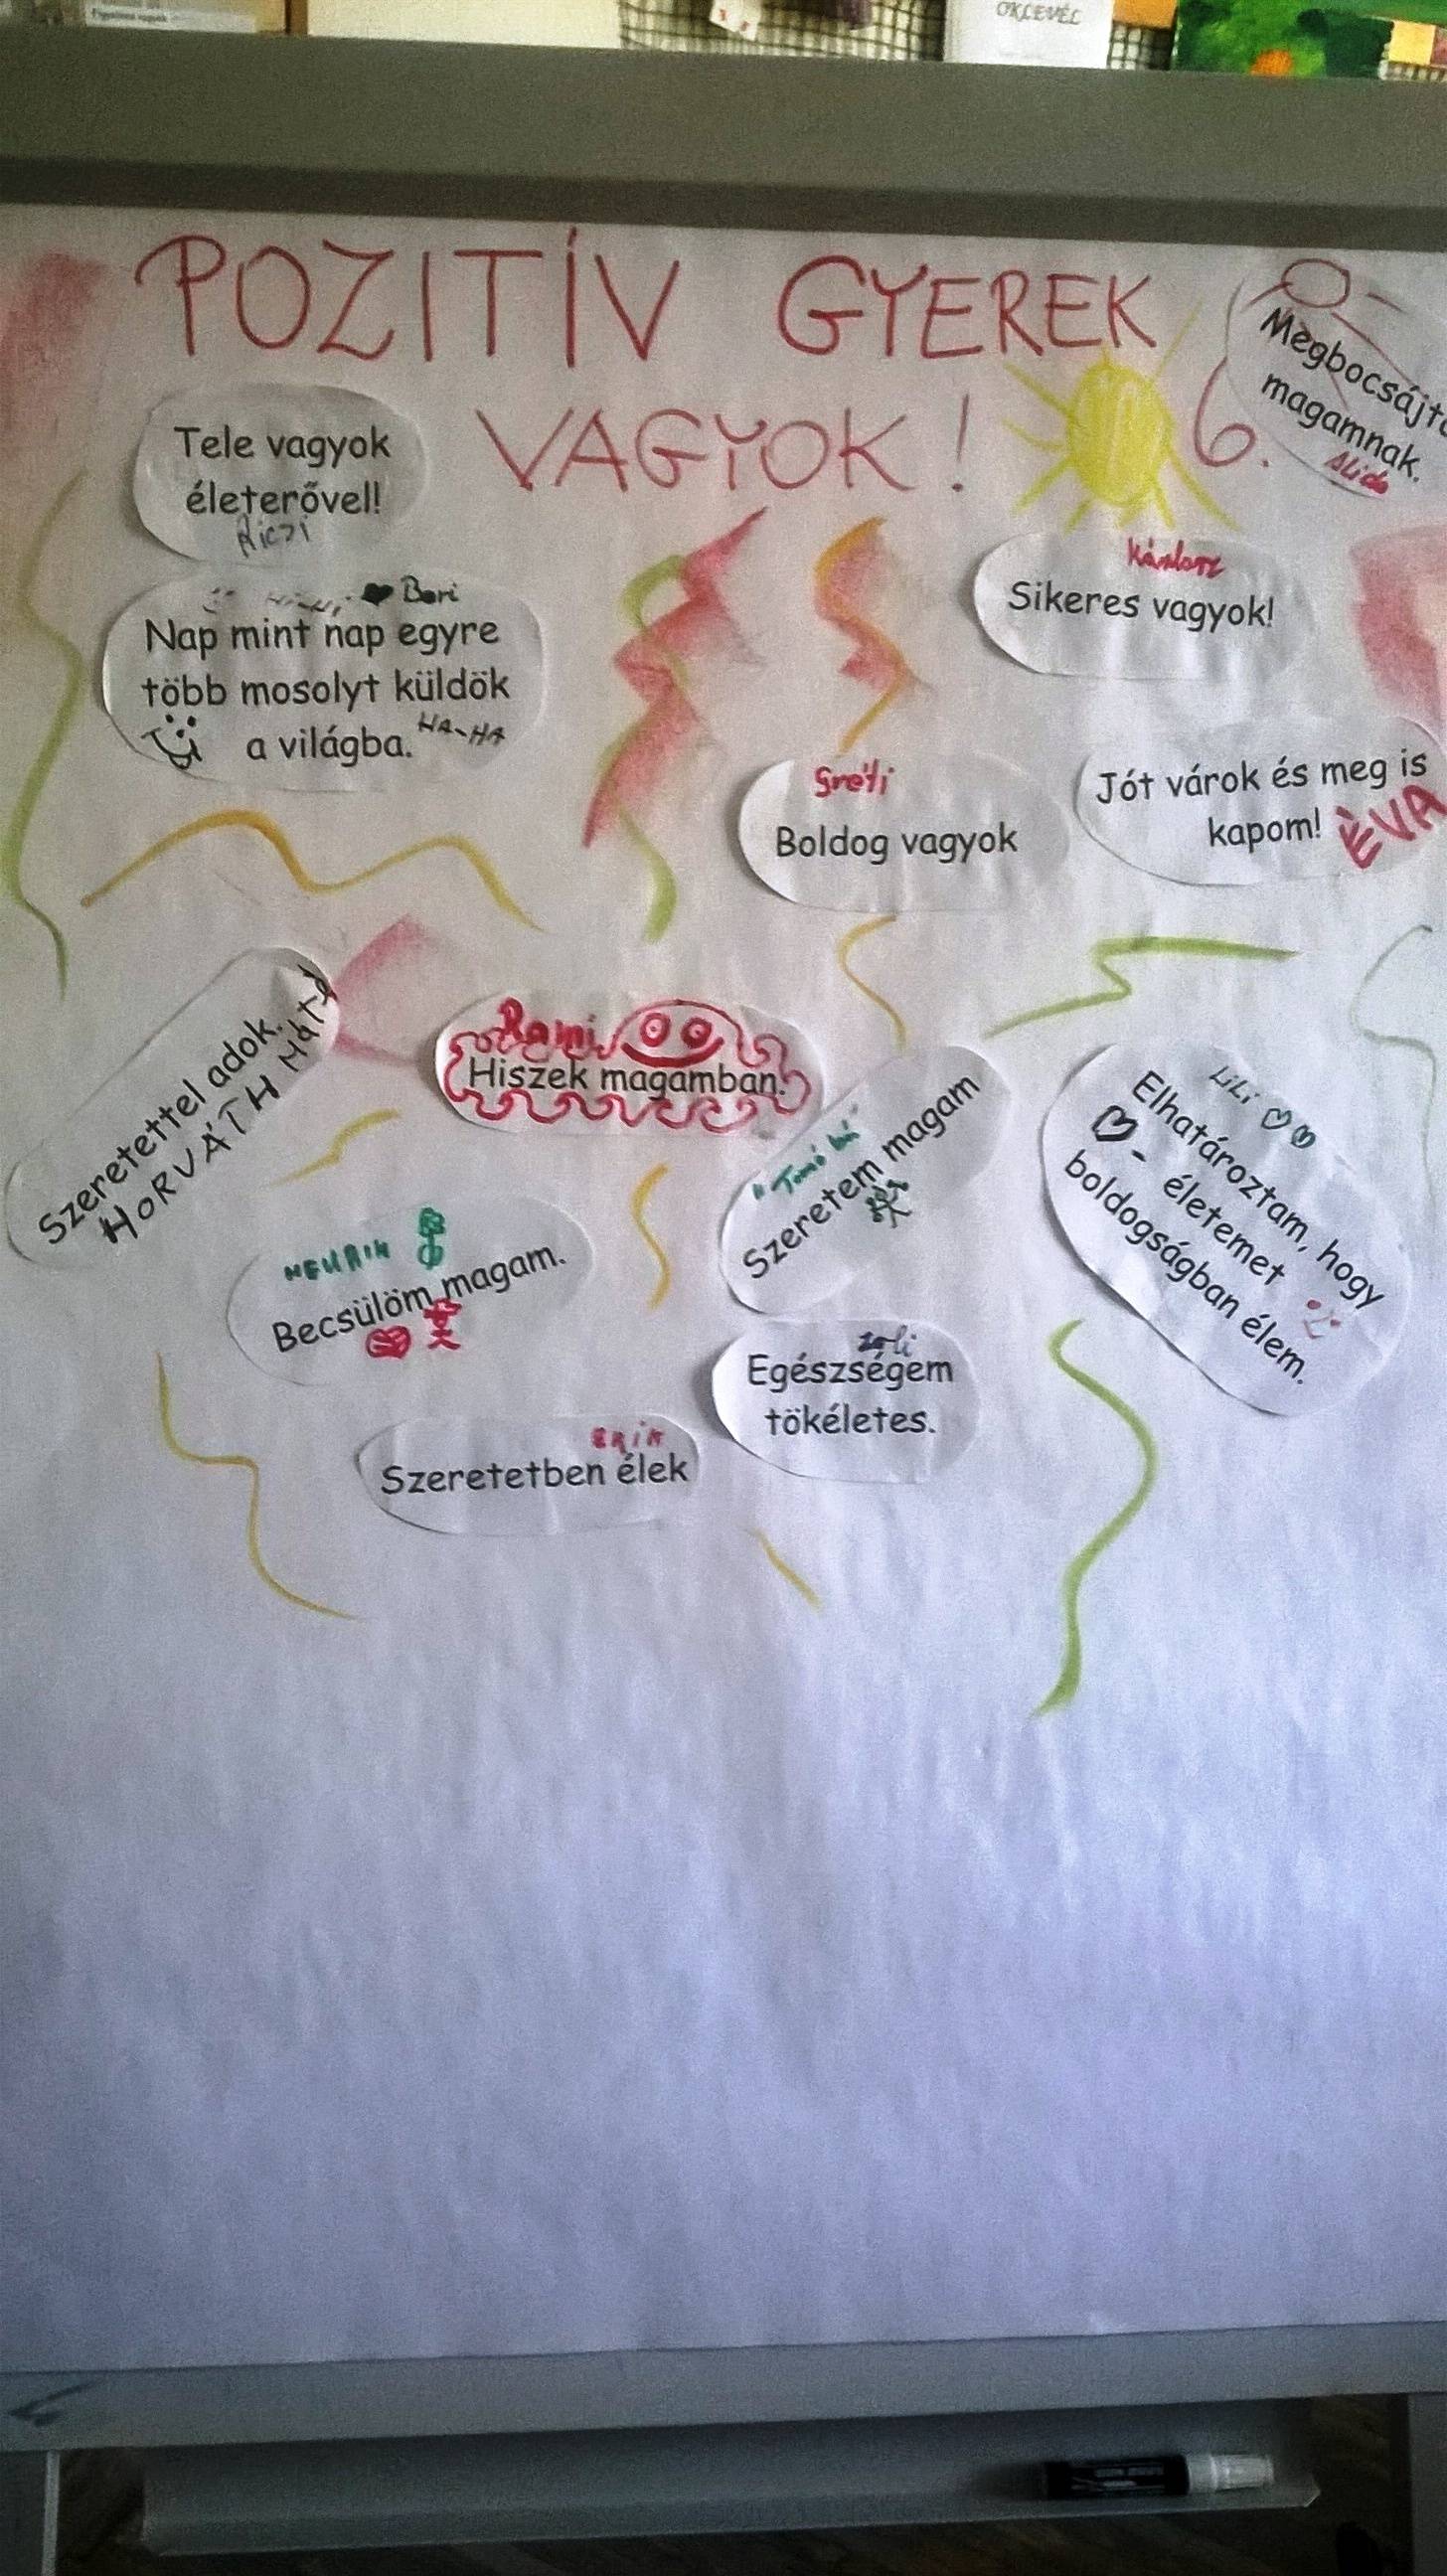 OKLEVÉL
POZITÍV GYEREK
VAGYOK!
6.
Megbocsájto
magamnak.
Alida
Tele vagyok
életerővel!
Riczi
Bori
Nap mint nap egyre
több mosolyt küldök
a világba.
HA-HA
Sikeres vagyok!
Gréti
Boldog vagyok
Jót várok és meg is
kapom!
ÉVA
Szeretettel adok.
HORVÁTH Máté
Rami
Hiszek magamban.
Szeretem magam
Lili
Elhatároztam, hogy
- életemet
boldogságban élem.
Becsülöm magam.
Zoli
Egészségem
tökéletes.
Szeretetben élek